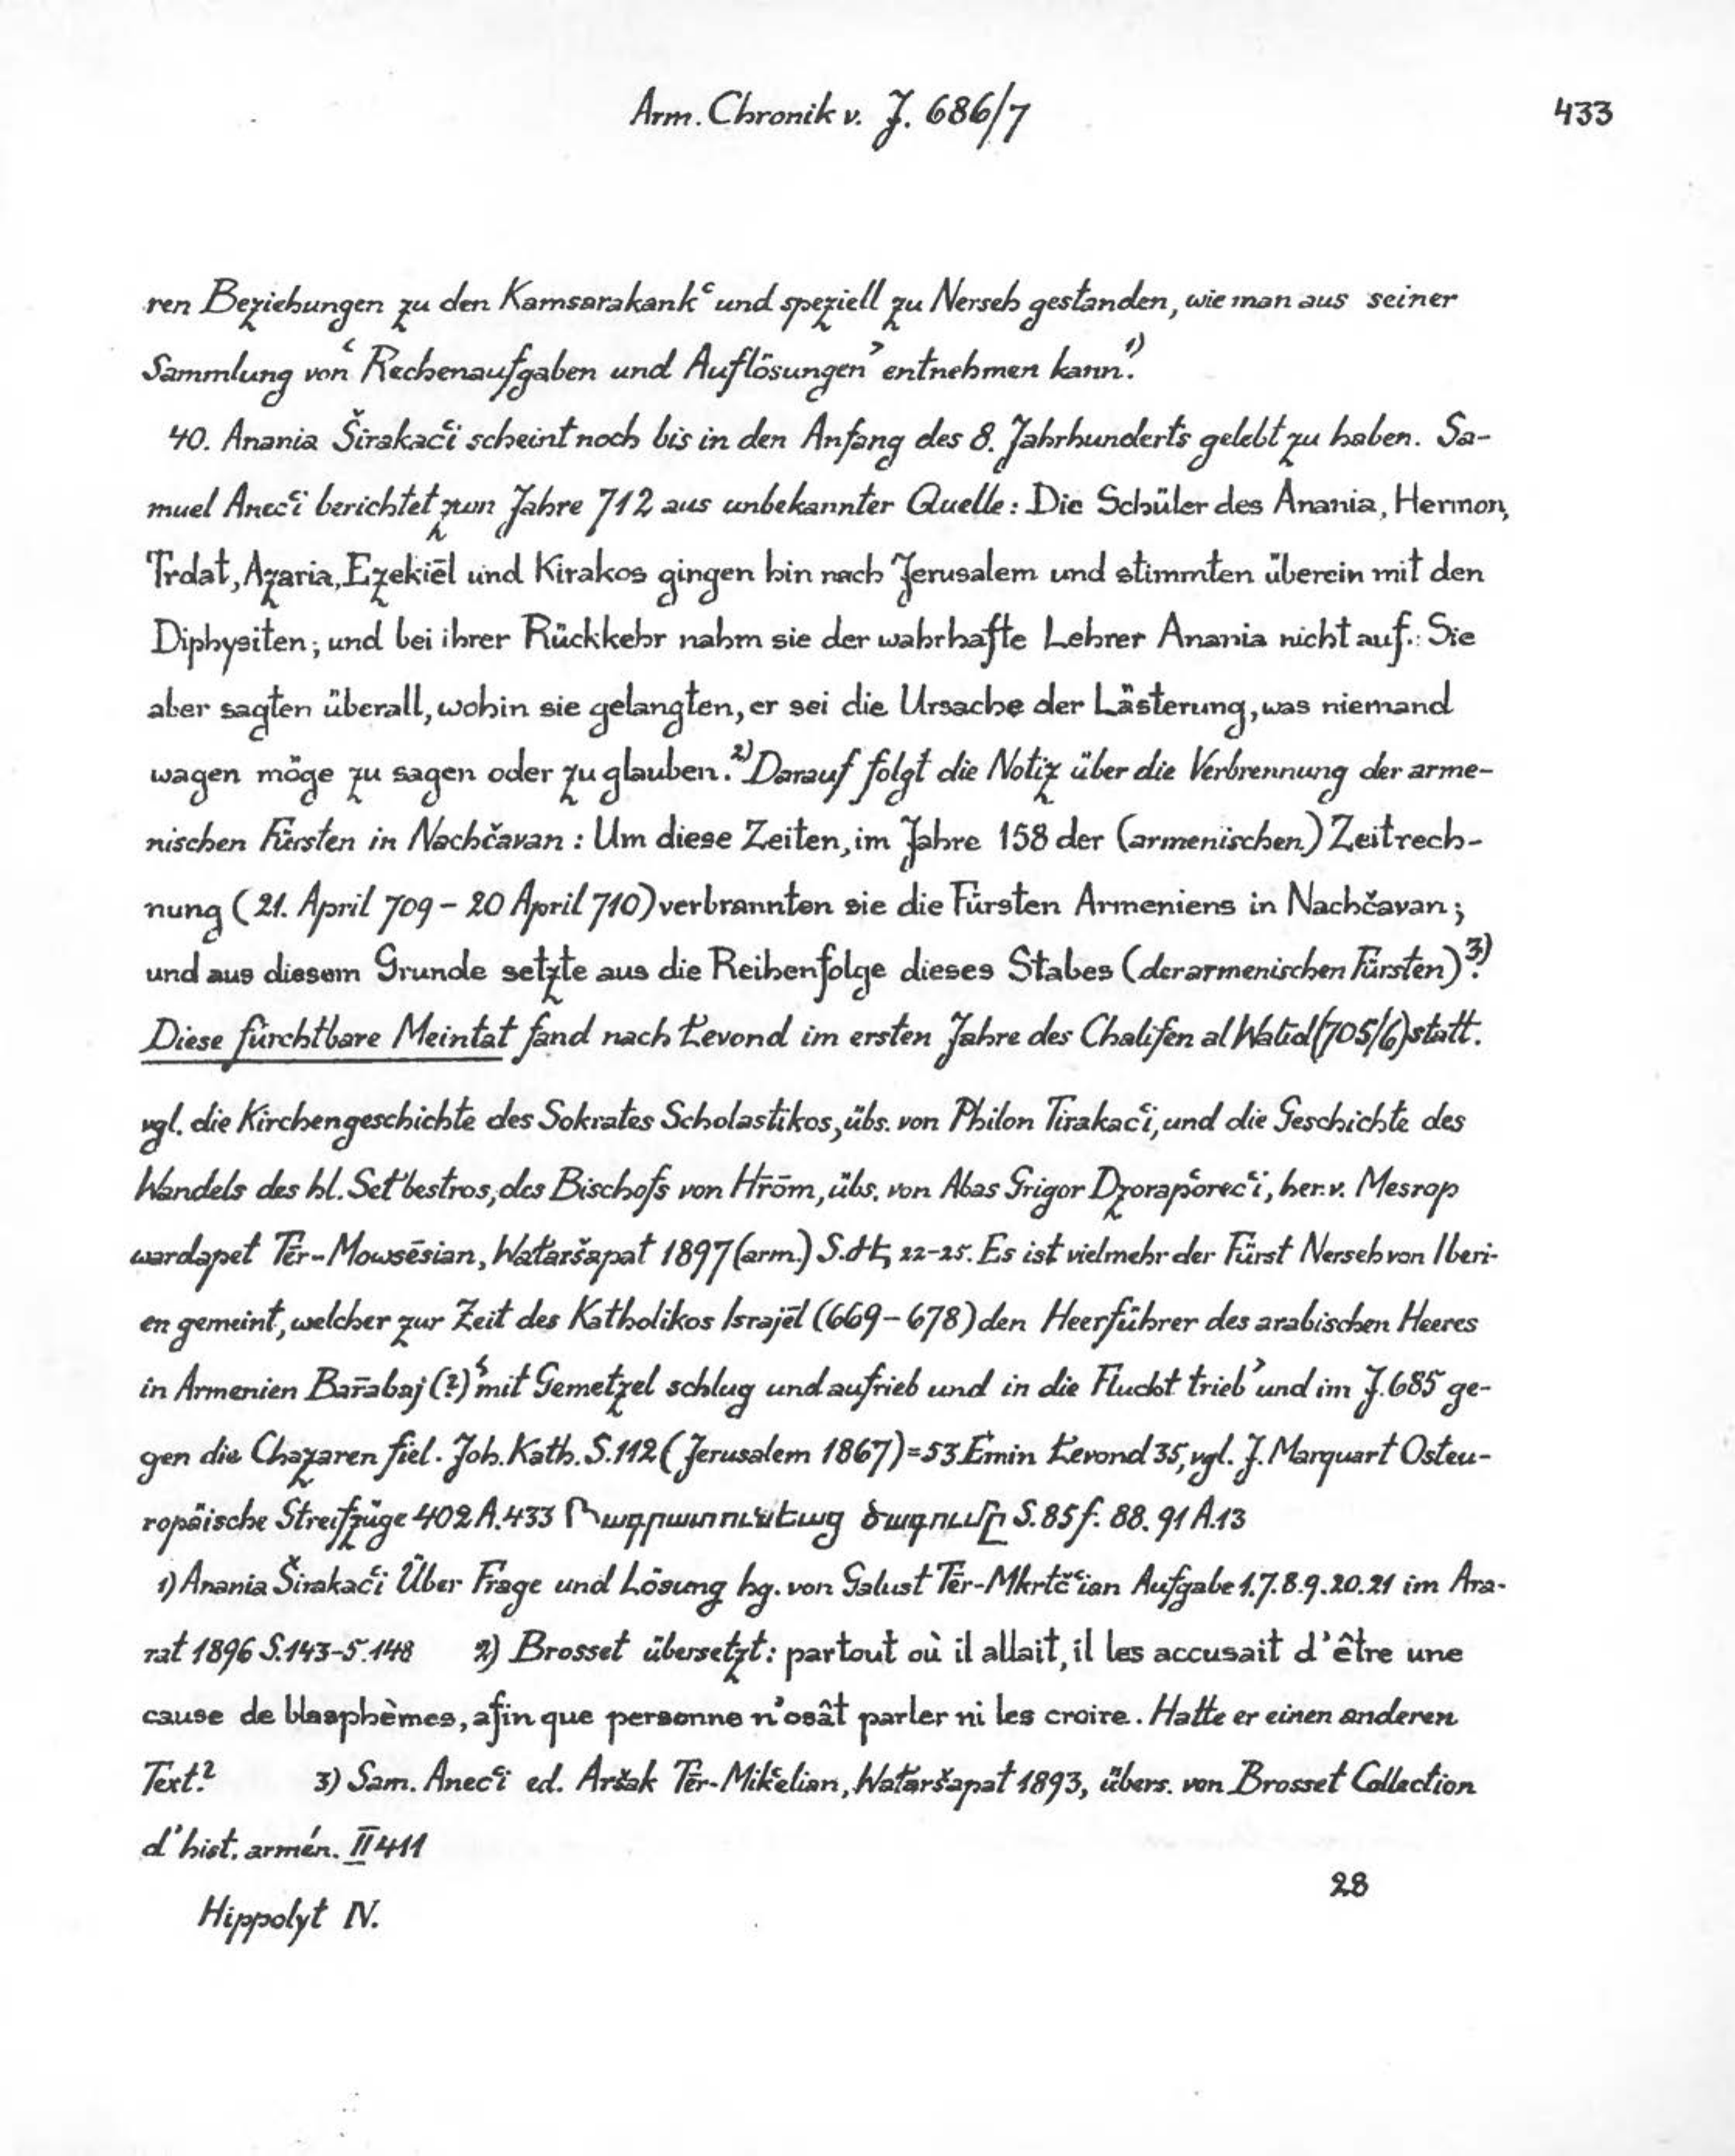 Arm. Chronik v. J. 686/7 433
ren Beziehungen zu den Kamsarakankʿ und speziell zu Nerseh gestanden, wie man aus seiner
Sammlung von ‘Rechenaufgaben und Auflösungen’ entnehmen kann.¹⁾
40. Anania Širakacʿi scheint noch bis in den Anfang des 8. Jahrhunderts gelebt zu haben. Sa-
muel Anecʿi berichtet zum Jahre 712 aus unbekannter Quelle: Die Schüler des Anania, Hermon,
Trdat, Azaria, Ezekiēl und Kirakos gingen hin nach Jerusalem und stimmten überein mit den
Diphysiten; und bei ihrer Rückkehr nahm sie der wahrhafte Lehrer Anania nicht auf. Sie
aber sagten überall, wohin sie gelangten, er sei die Ursache der Lästerung, was niemand
wagen möge zu sagen oder zu glauben.²⁾ Darauf folgt die Notiz über die Verbrennung der arme-
nischen Fürsten in Nachčavan: Um diese Zeiten, im Jahre 158 der (armenischen) Zeitrech-
nung (21. April 709 – 20 April 710) verbrannten sie die Fürsten Armeniens in Nachčavan;
und aus diesem Grunde setzte aus die Reihenfolge dieses Stabes (der armenischen Fürsten).³⁾
Diese fürchtbare Meintat fand nach Łevond im ersten Jahre des Chalifen al Walīd (705/6) statt.
vgl. die Kirchengeschichte des Sokrates Scholastikos, übs. von Philon Tirakacʿi, und die Geschichte des
Wandels des hl. Sełbestros, des Bischofs von Hṙōm, übs. von Abas Grigor Dzorapʿorecʿi, her. v. Mesrop
wardapet Tēr-Mowsēsian, Wałaršapat 1897 (arm.) S. 22-25. Es ist vielmehr der Fürst Nerseh von Iberi-
en gemeint, welcher zur Zeit des Katholikos Israjēl (669–678) den Heerführer des arabischen Heeres
in Armenien Baṙabaj (?) ‘mit Gemetzel schlug und aufrieb und in die Flucht trieb’ und im J. 685 ge-
gen die Chazaren fiel. Joh. Kath. S. 112 (Jerusalem 1867) = 53 Emin Łevond 35, vgl. J. Marquart Osteu-
ropäische Streifzüge 402 A. 433 S. 85 f. 88. 91 A. 13
1) Anania Širakacʿi Über Frage und Lösung hg. von Galust Tēr-Mkrtčʿian Aufgabe 1.7.8.9.20.21 im Ara-
rat 1896 S. 143-5. 148 2) Brosset übersetzt: partout où il allait, il les accusait d’être une
cause de blasphèmes, afin que personne n’osât parler ni les croire. Hatte er einen anderen
Text? 3) Sam. Anecʿi ed. Aršak Tēr-Mikʿelian, Wałaršapat 1893, übers. von Brosset Collection
d’hist. armén. II 411
28
Hippolyt IV.